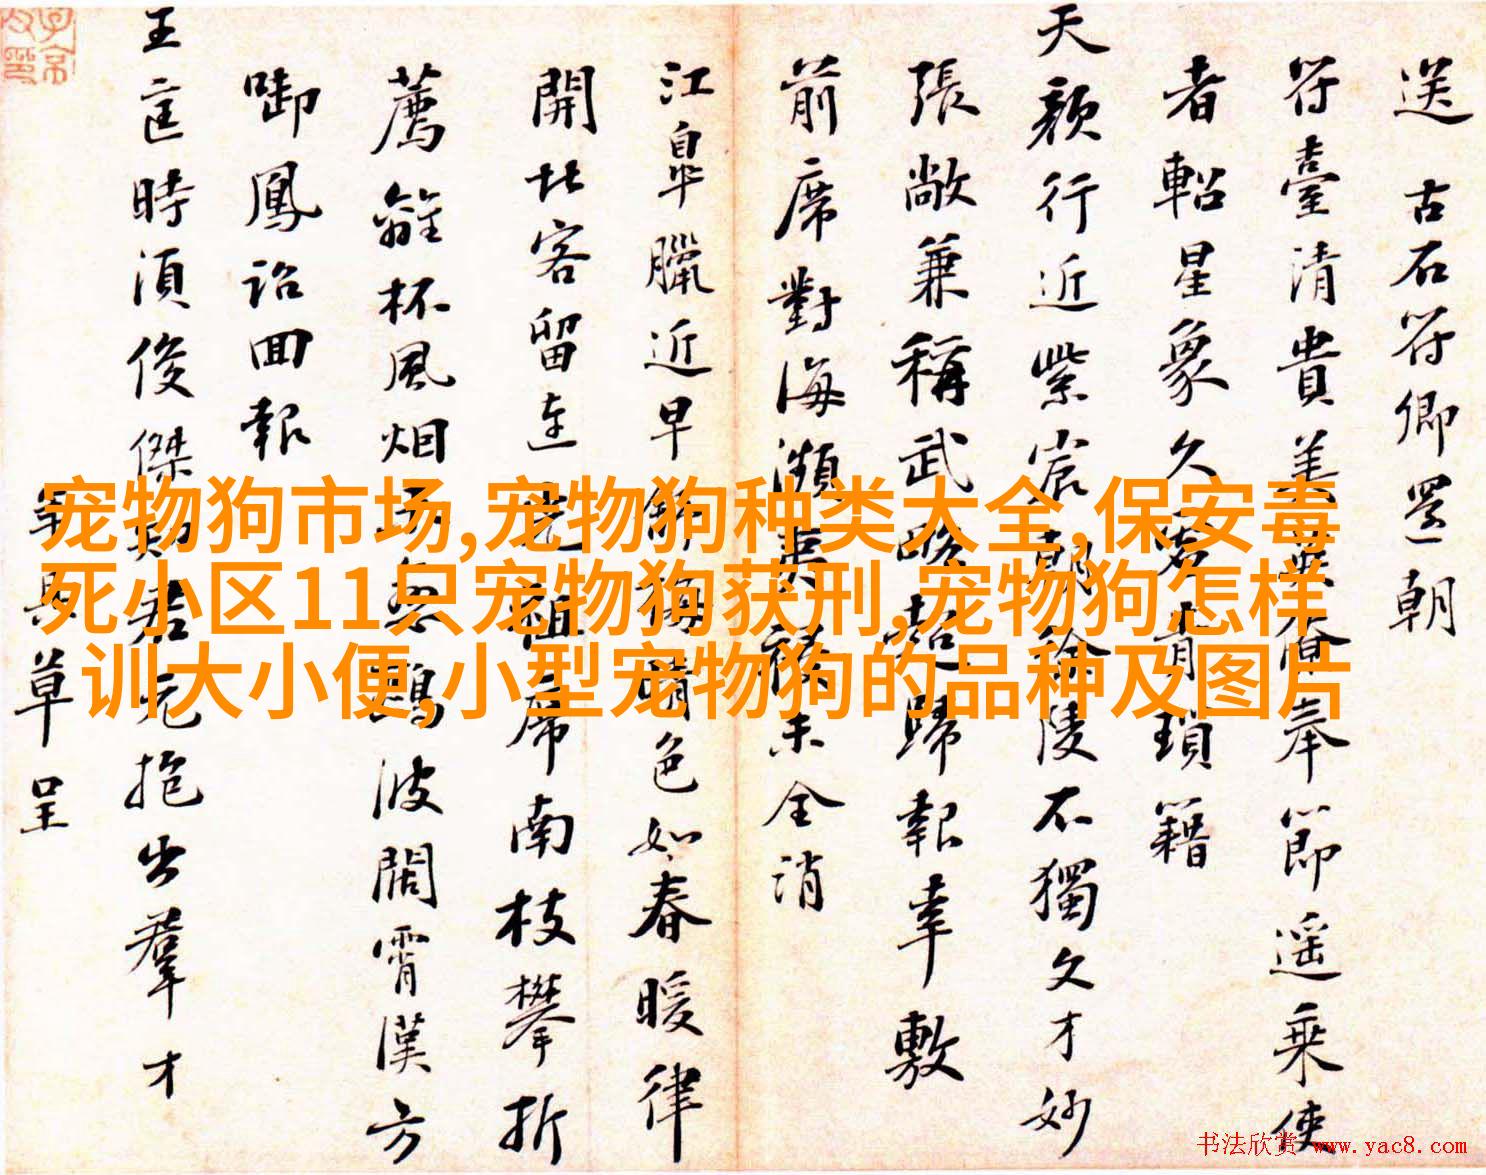 送 古石符卿還朝
符臺清貴美奉節遥乘使
者軺星象久青瑣籍
天顏行近紫宸徐陵不獨文才妙
張敞兼稱武略超歸報幸敷
前席對海瀕未全消
江皋臘近早梅晴色如春暖律
開北客留連祖席南枝攀折
薦離杯風烟鷁波闊霄漢方
啣鳳詔回報
王時須俊傑君抱出羣才
具草呈
宠物狗市场,宠物狗种类大全,保安毒
死小区11只宠物狗获刑,宠物狗怎样
训大小便,小型宠物狗的品种及图片
书法欣赏 www.yac8.com